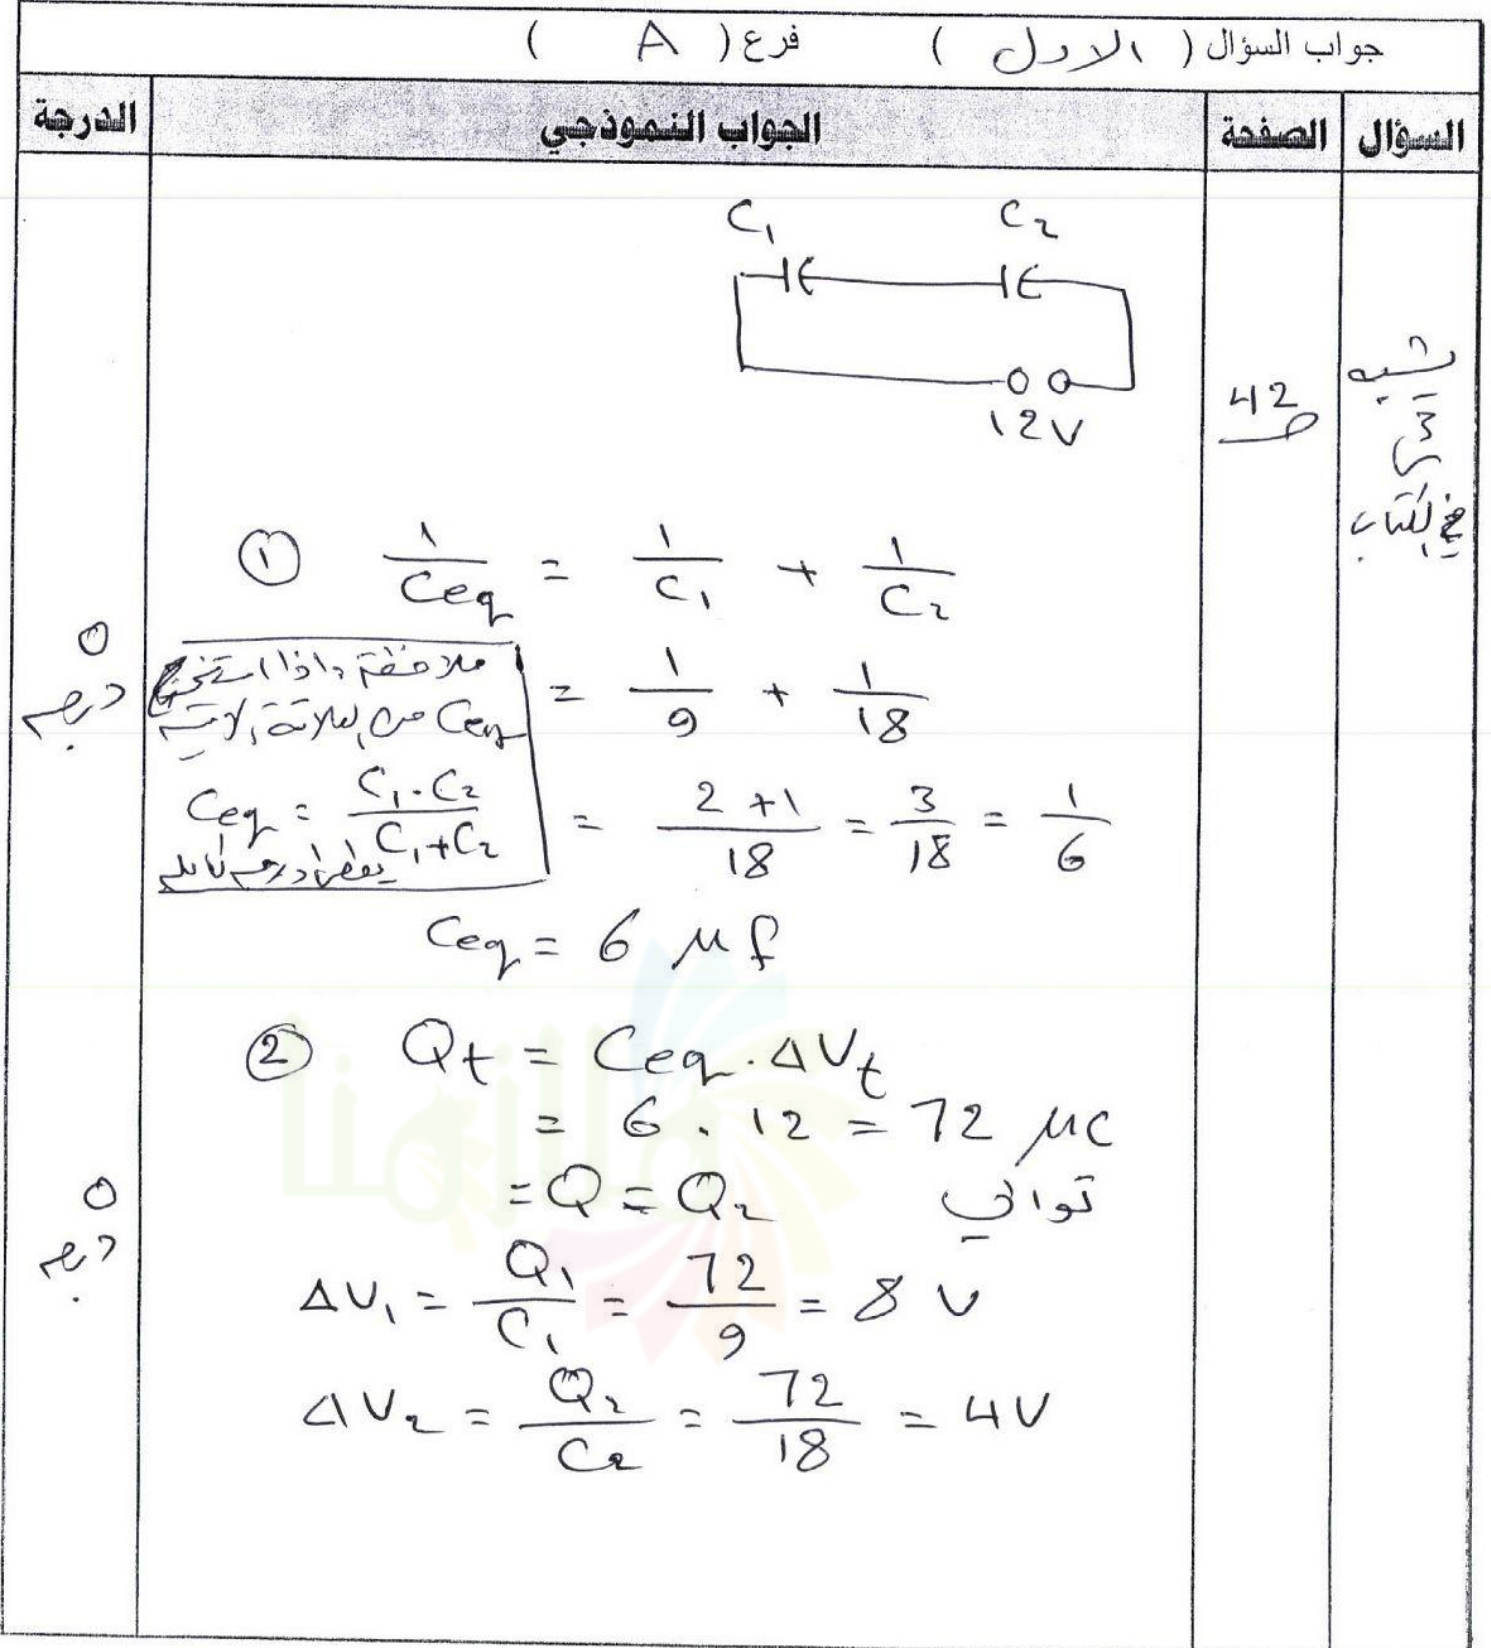 جواب السؤال ( الاول ) فرع ( A )
السؤال الصفحة الجواب النموذجي الدرجة
C₁ C₂
12V
شبيه
س3
في الكتاب
42
ص
① 1/Ceq = 1/C₁ + 1/C₂
= 1/9 + 1/18
= 2+1/18 = 3/18 = 1/6
٥
درجه
ملاحظة : اذا استخرج
Ceq من العلاقة الاتية
Ceq = C₁.C₂/C₁+C₂
يعطى درجه كامله
Ceq = 6 μf
② Qt = Ceq . ΔVt
= 6 . 12 = 72 μc
= Q = Q₂ توالي
٥
درجه
ΔV₁ = Q₁/C₁ = 72/9 = 8 V
ΔV₂ = Q₂/C₂ = 72/18 = 4V
ملازمنا